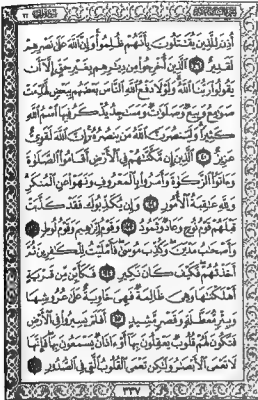 أُذِنَ لِلَّذِينَ يُقَٰتَلُونَ بِأَنَّهُمْ ظُلِمُوا۟ وَإِنَّ ٱللَّهَ عَلَىٰ نَصْرِهِمْ
لَقَدِيرٌ ٣٩ ٱلَّذِينَ أُخْرِجُوا۟ مِن دِيَٰرِهِم بِغَيْرِ حَقٍّ إِلَّآ أَن
يَقُولُوا۟ رَبُّنَا ٱللَّهُ وَلَوْلَا دَفْعُ ٱللَّهِ ٱلنَّاسَ بَعْضَهُم بِبَعْضٍ لَّهُدِّمَتْ
صَوَٰمِعُ وَبِيَعٌ وَصَلَوَٰتٌ وَمَسَٰجِدُ يُذْكَرُ فِيهَا ٱسْمُ ٱللَّهِ
كَثِيرًا وَلَيَنصُرَنَّ ٱللَّهُ مَن يَنصُرُهُۥٓ إِنَّ ٱللَّهَ لَقَوِىٌّ
عَزِيزٌ ٤٠ ٱلَّذِينَ إِن مَّكَّنَّٰهُمْ فِى ٱلْأَرْضِ أَقَامُوا۟ ٱلصَّلَوٰةَ
وَءَاتَوُا۟ ٱلزَّكَوٰةَ وَأَمَرُوا۟ بِٱلْمَعْرُوفِ وَنَهَوْا۟ عَنِ ٱلْمُنكَرِ
وَلِلَّهِ عَٰقِبَةُ ٱلْأُمُورِ ٤١ وَإِن يُكَذِّبُوكَ فَقَدْ كَذَّبَتْ
قَبْلَهُمْ قَوْمُ نُوحٍ وَعَادٌ وَثَمُودُ ٤٢ وَقَوْمُ إِبْرَٰهِيمَ وَقَوْمُ لُوطٍ ٤٣
وَأَصْحَٰبُ مَدْيَنَ وَكُذِّبَ مُوسَىٰ فَأَمْلَيْتُ لِلْكَٰفِرِينَ ثُمَّ
أَخَذْتُهُمْ فَكَيْفَ كَانَ نَكِيرِ ٤٤ فَكَأَيِّن مِّن قَرْيَةٍ
أَهْلَكْنَٰهَا وَهِىَ ظَالِمَةٌ فَهِىَ خَاوِيَةٌ عَلَىٰ عُرُوشِهَا
وَبِئْرٍ مُّعَطَّلَةٍ وَقَصْرٍ مَّشِيدٍ ٤٥ أَفَلَمْ يَسِيرُوا۟ فِى ٱلْأَرْضِ
فَتَكُونَ لَهُمْ قُلُوبٌ يَعْقِلُونَ بِهَآ أَوْ ءَاذَانٌ يَسْمَعُونَ بِهَا فَإِنَّهَا
لَا تَعْمَى ٱلْأَبْصَٰرُ وَلَٰكِن تَعْمَى ٱلْقُلُوبُ ٱلَّتِى فِى ٱلصُّدُورِ ٤٦
٣٣٧